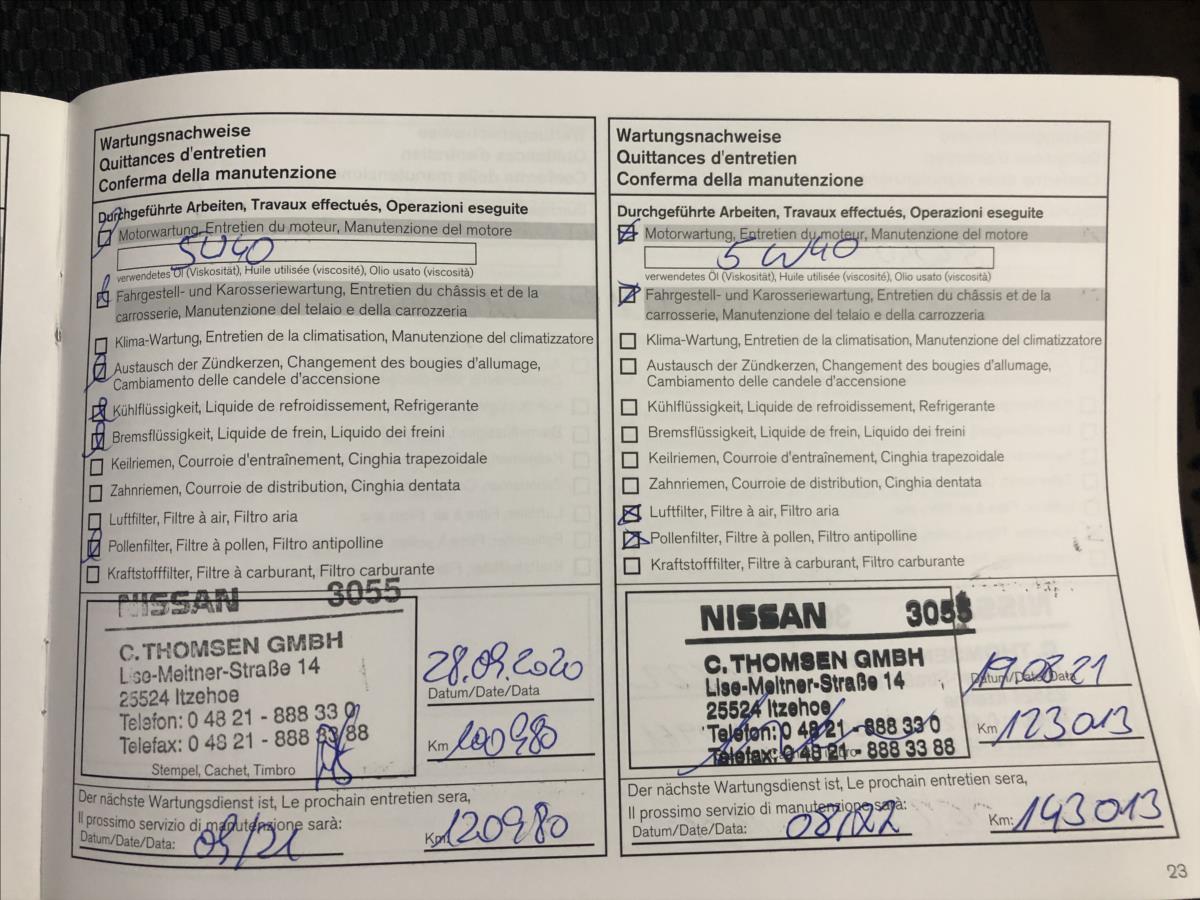 Wartungsnachweise
Quittances d'entretien
Conferma della manutenzione
Durchgeführte Arbeiten, Travaux effectués, Operazioni eseguite
Motorwartung, Entretien du moteur, Manutenzione del motore
5W40
verwendetes Öl (Viskosität), Huile utilisée (viscosité), Olio usato (viscosità)
Fahrgestell- und Karosseriewartung, Entretien du châssis et de la
carrosserie, Manutenzione del telaio e della carrozzeria
Klima-Wartung, Entretien de la climatisation, Manutenzione del climatizzatore
Austausch der Zündkerzen, Changement des bougies d'allumage,
Cambiamento delle candele d'accensione
Kühlflüssigkeit, Liquide de refroidissement, Refrigerante
Bremsflüssigkeit, Liquide de frein, Liquido dei freini
Keilriemen, Courroie d'entraînement, Cinghia trapezoidale
Zahnriemen, Courroie de distribution, Cinghia dentata
Luftfilter, Filtre à air, Filtro aria
Pollenfilter, Filtre à pollen, Filtro antipolline
Kraftstofffilter, Filtre à carburant, Filtro carburante
NISSAN 3055
C. THOMSEN GMBH
Lise-Meitner-Straße 14
25524 Itzehoe
Telefon: 0 48 21 - 888 33 0
Telefax: 0 48 21 - 888 33 88
Stempel, Cachet, Timbro
28.09.2020
Datum/Date/Data
Km 100980
Der nächste Wartungsdienst ist, Le prochain entretien sera,
Il prossimo servizio di manutenzione sarà:
Datum/Date/Data: 09/21
Km: 120980
Wartungsnachweise
Quittances d'entretien
Conferma della manutenzione
Durchgeführte Arbeiten, Travaux effectués, Operazioni eseguite
Motorwartung, Entretien du moteur, Manutenzione del motore
5W40
verwendetes Öl (Viskosität), Huile utilisée (viscosité), Olio usato (viscosità)
Fahrgestell- und Karosseriewartung, Entretien du châssis et de la
carrosserie, Manutenzione del telaio e della carrozzeria
Klima-Wartung, Entretien de la climatisation, Manutenzione del climatizzatore
Austausch der Zündkerzen, Changement des bougies d'allumage,
Cambiamento delle candele d'accensione
Kühlflüssigkeit, Liquide de refroidissement, Refrigerante
Bremsflüssigkeit, Liquide de frein, Liquido dei freini
Keilriemen, Courroie d'entraînement, Cinghia trapezoidale
Zahnriemen, Courroie de distribution, Cinghia dentata
Luftfilter, Filtre à air, Filtro aria
Pollenfilter, Filtre à pollen, Filtro antipolline
Kraftstofffilter, Filtre à carburant, Filtro carburante
NISSAN 3055
C. THOMSEN GMBH
Lise-Meitner-Straße 14
25524 Itzehoe
Telefon: 0 48 21 - 888 33 0
Telefax: 0 48 21 - 888 33 88
19.08.21
Datum/Date/Data
Km 123013
Der nächste Wartungsdienst ist, Le prochain entretien sera,
Il prossimo servizio di manutenzione sarà:
Datum/Date/Data: 08/22
Km: 143013
23